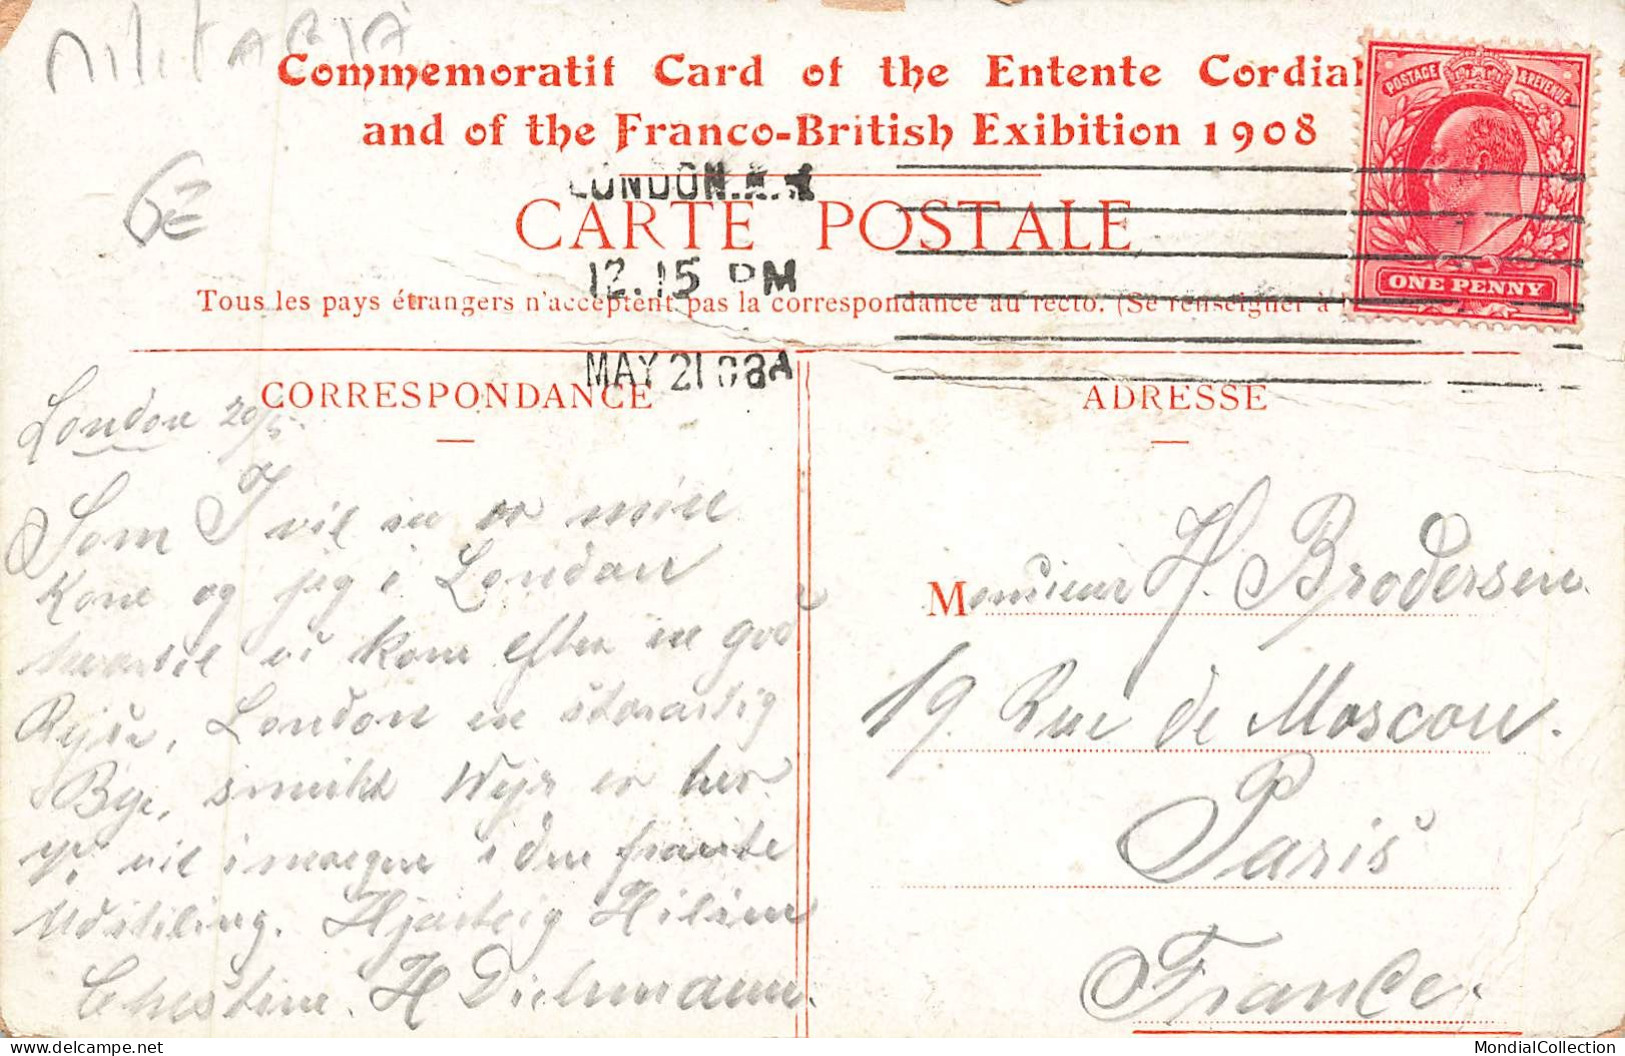 MILITARIA
Commemoratif Card of the Entente Cordial
and of the Franco-British Exibition 1908
6€
LONDON.
CARTE POSTALE
12.15 PM
Tous les pays étrangers n'acceptent pas la correspondance au recto. (Se renseigner à l
MAY 21 08A
POSTAGE & REVENUE
ONE PENNY
CORRESPONDANCE
London 20/5
Som I vil se er min
Kone og jeg i London
vi kom efter en god
Rejse, London en storartig
By, smukt Wejr er her
vil i morgen i den franske
Udstilling. Hjertelig Hilsen
H Diehmann.
ADRESSE
Monsieur H. Brodersen.
19. Rue de Moscou.
Paris
France.
MondialCollection